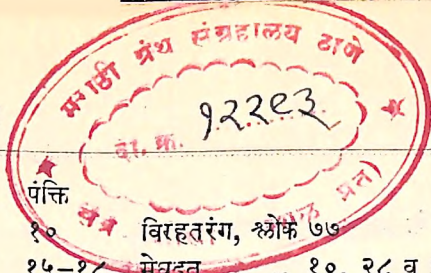 मराठी ग्रंथ संग्रहालय ठाणे
दा. क्र. १२२९३
पंक्ति
१० विरहतरंग, श्लोक ७७
१५-१८ मेघदूत १०, २८ व
प्रत)